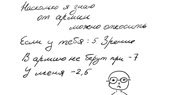 Насколько я знаю
от армии
можно откосить
Если у тебя : 5. Зрение
В армию не берут при -7
У меня -2,5